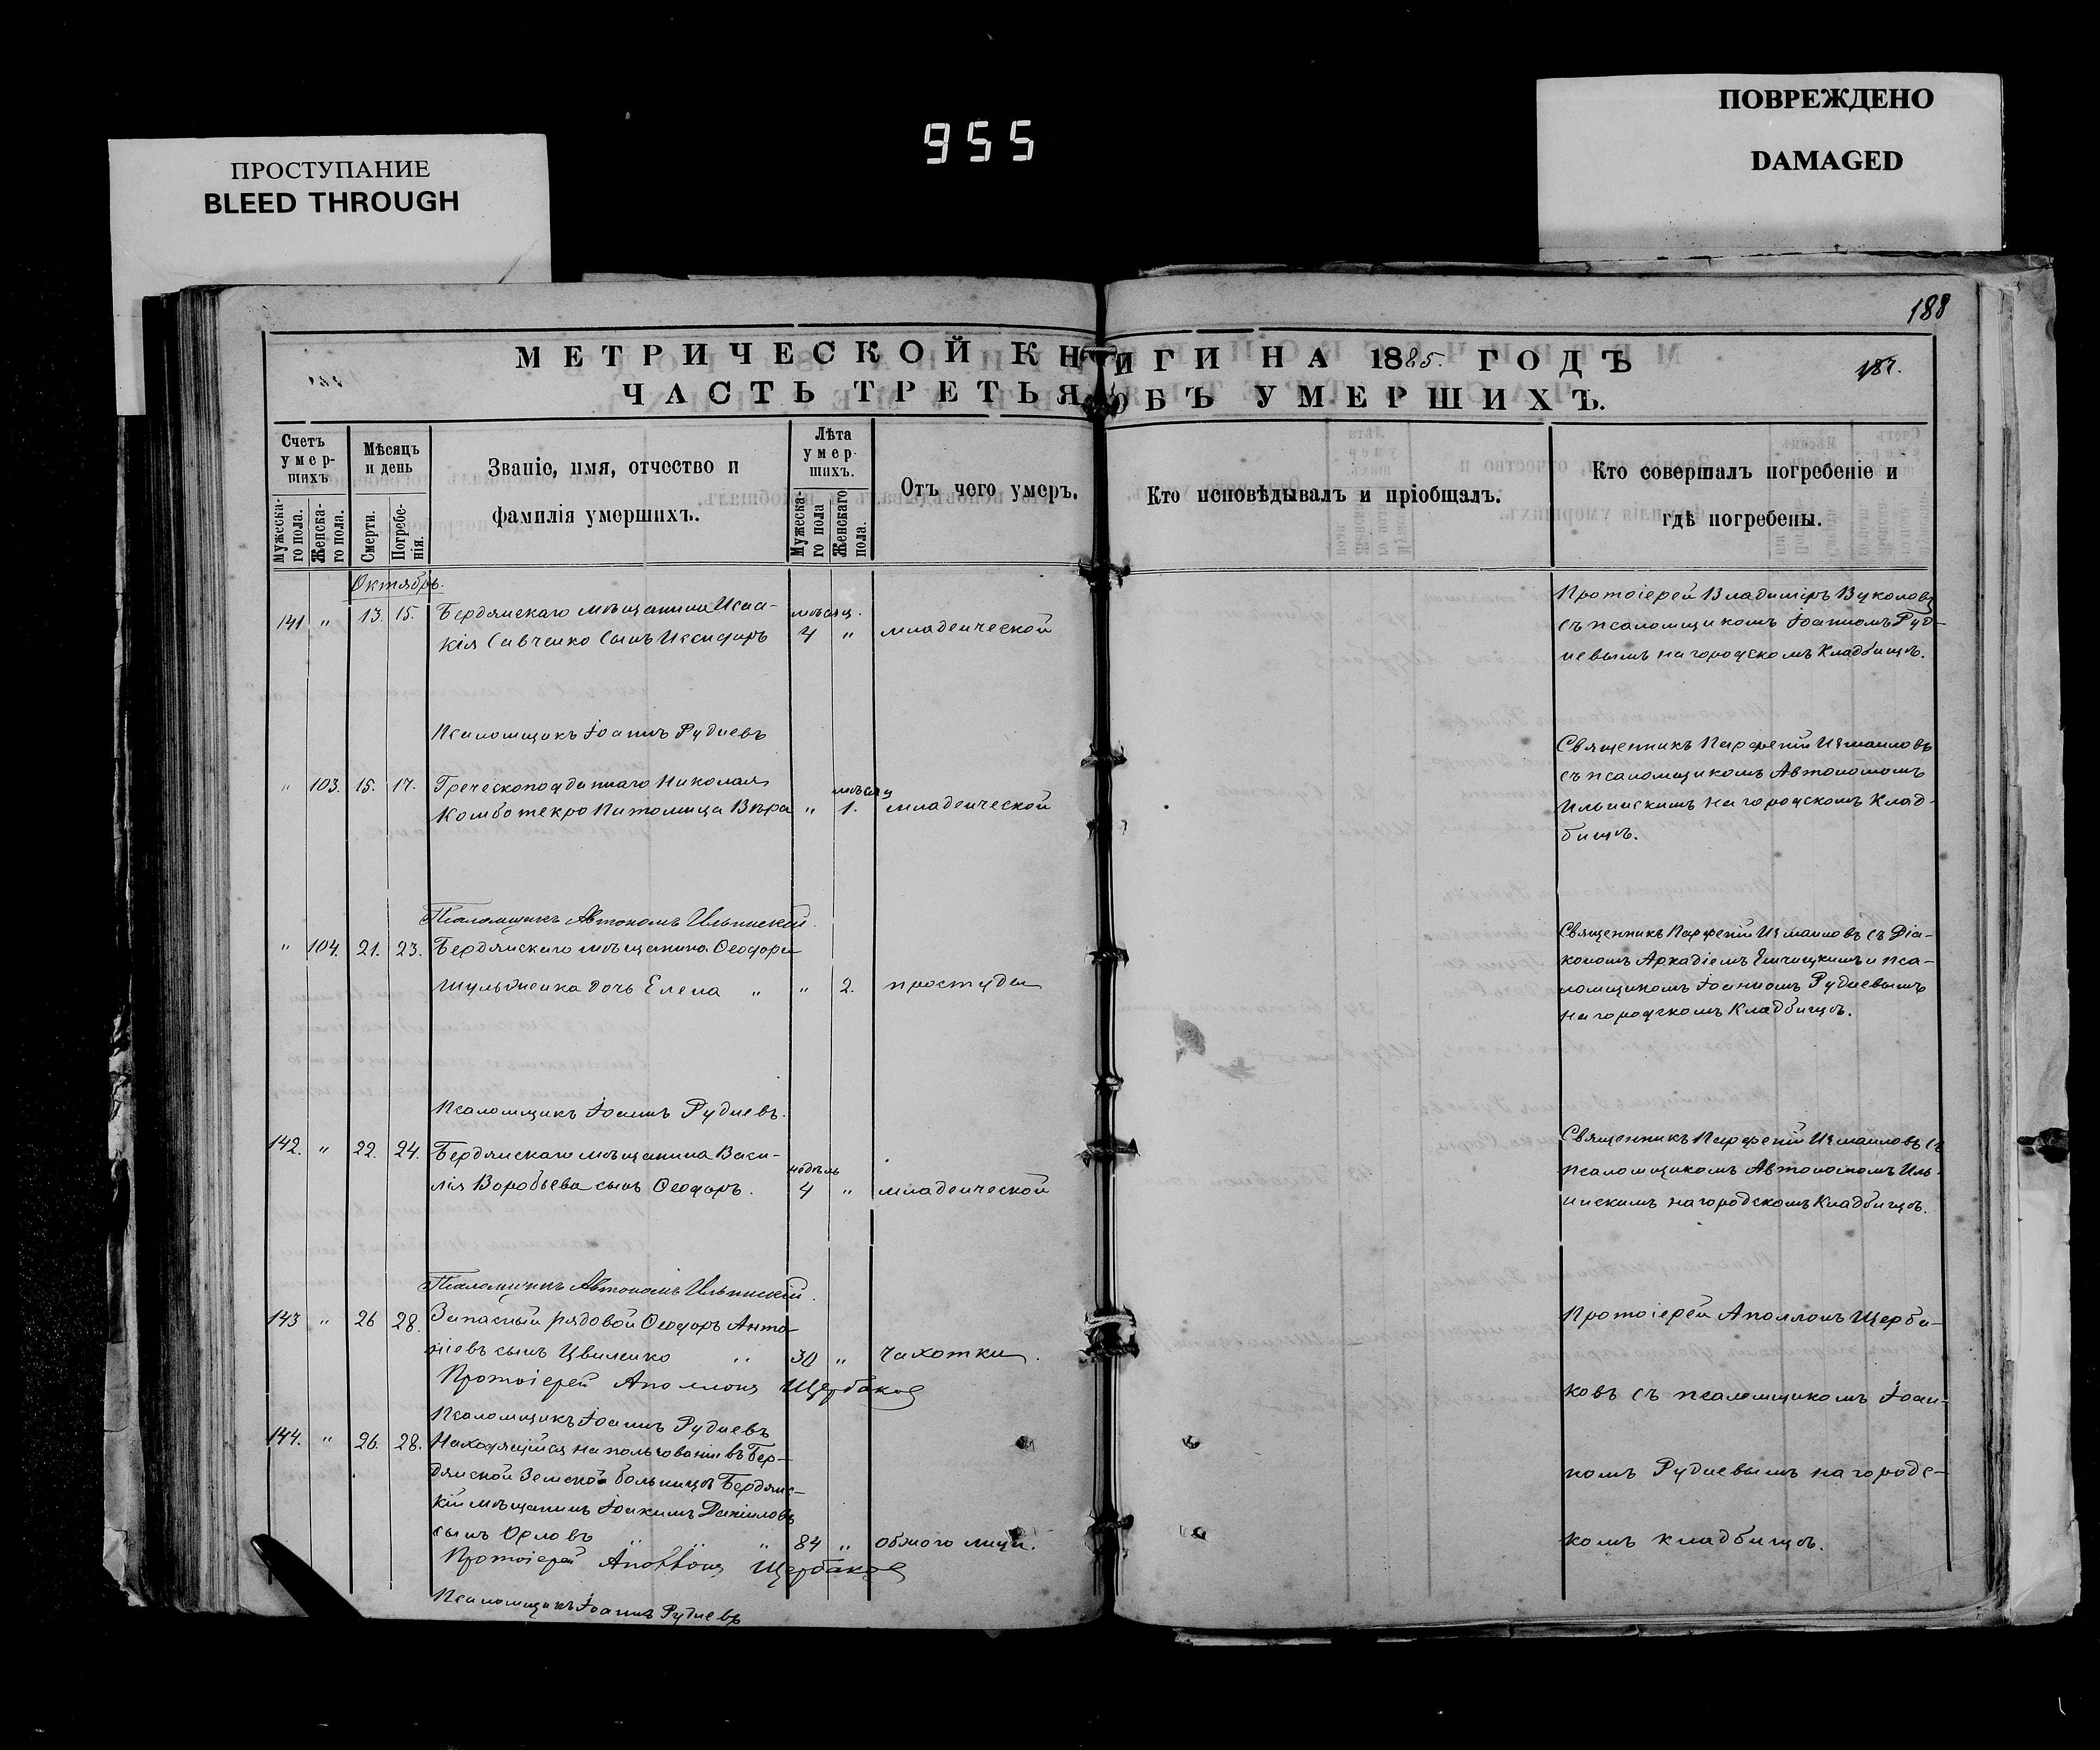 955
ПРОСТУПАНИЕ
BLEED THROUGH
ПОВРЕЖДЕНО
DAMAGED
188
МЕТРИЧЕСКОЙ КНИГИ НА 1885. ГОДЪ
187.
ЧАСТЬ ТРЕТЬЯ ОБЪ УМЕРШИХЪ.
Счетъ умер-шихъ
Мужеска-го пола.
Женска-го пола.
Мѣсяцъ и день
Смерти.
Погребе-нія.
Званіе, имя, отчество и
фамилія умершихъ.
Лѣта умер-шихъ.
Мужеска-го пола
Женскаго пола.
Отъ чего умеръ.
Кто исповѣдывалъ и пріобщалъ.
Кто совершалъ погребеніе и
гдѣ погребены.
Октябрь.
141 " 13. 15. Бердянскаго мѣщанина Исаа-
кія Савченко сынъ Исидоръ
мѣсяц.
4 " младенческой
Протоіерей Владиміръ Вуколовъ
съ псаломщикомъ Іоанномъ Руд-
невымъ на городскомъ Кладбищѣ.
Псаломщикъ Іоаннъ Рудневъ
" 103. 15. 17. Греческоподданнаго Николая
Комботекро питомица Вѣра "
мѣсяц
1. младенческой
Священникъ Парфеній Измаиловъ
съ псаломщикомъ Автономомъ
Ильинскимъ на городскомъ Клад-
бищѣ.
Псаломщикъ Автономъ Ильинскій.
" 104. 21. 23. Бердянскаго мѣщанина Ѳеодора
Шульженка дочь Елена " " 2. простуды
Священникъ Парфеній Измаиловъ съ Діа-
кономъ Аркадіемъ и пса-
ломщикомъ Іоанномъ Рудневымъ
на городскомъ Кладбищѣ.
Псаломщикъ Іоаннъ Рудневъ.
142. " 22. 24. Бердянскаго мѣщанина Васи-
лія Воробьева сынъ Ѳеодоръ.
недѣль
4 " младенческой
Священникъ Парфеній Измаиловъ съ
псаломщикомъ Автономомъ Иль-
инскимъ на городскомъ Кладбищѣ.
Псаломщикъ Автономъ Ильинскій.
143 " 26 28. Запасный рядовой Ѳеодоръ Анто-
ніевъ сынъ Цвиленко " 30 " чахотки.
Протоіерей Аполлонъ Щербаковъ
Псаломщикъ Іоаннъ Рудневъ
144. " 26. 28. Находящійся на пользованіи въ Бер-
дянской Земской больницѣ Бердянс-
кій мѣщанинъ Іоакимъ Даніиловъ
сынъ Орловъ " " 84 "
Протоіерей Аполлонъ Щербаковъ
Псаломщикъ Іоаннъ Рудневъ
Протоіерей Аполлонъ Щерба-
ковъ съ псаломщикомъ Іоан-
номъ Рудневымъ на городс-
комъ кладбищѣ.